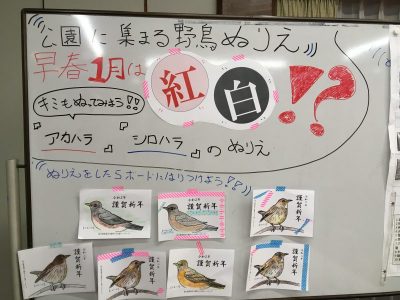 公園に集まる野鳥ぬりえ
早春1月は紅白!?
キミもぬってみよう!!
『アカハラ』『シロハラ』のぬりえ
ぬりえをしたらボードにはりつけよう!!
謹賀新年
謹賀新年
謹賀新年
謹賀新年
謹賀新年
謹賀新年
謹賀新年